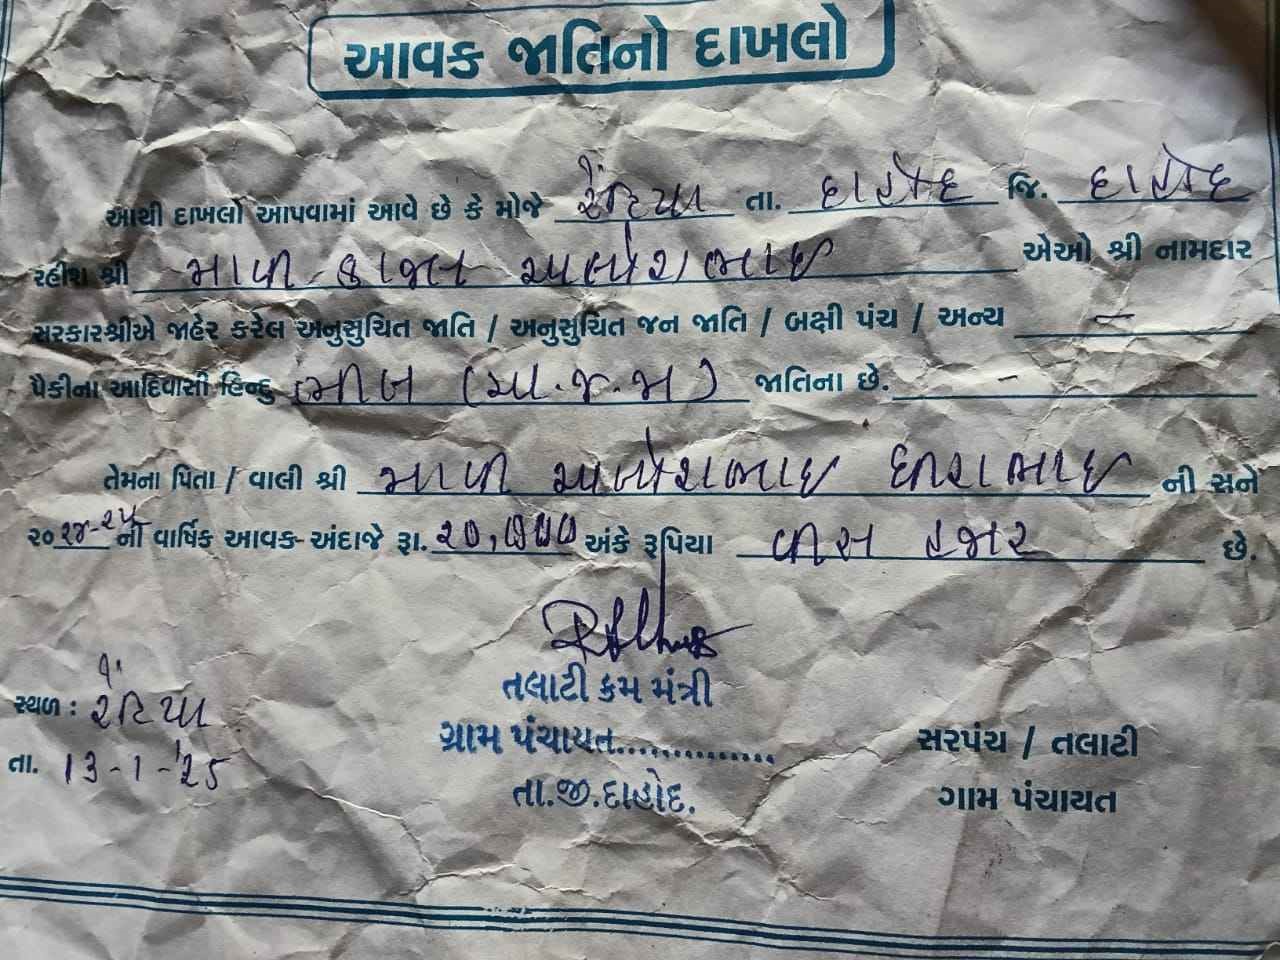 આવક જાતિનો દાખલો
આથી દાખલો આપવામાં આવે છે કે મોજે રેંટિયા તા. દાહોદ જિ. દાહોદ
રહીશ શ્રી માળી કાજલ એઓ શ્રી નામદાર
સરકારશ્રીએ જાહેર કરેલ અનુસુચિત જાતિ / અનુસુચિત જન જાતિ / બક્ષી પંચ / અન્ય —
પૈકીના આદિવાસી હિન્દુ ભીલ (અ.જ.જા) જાતિના છે. -
તેમના પિતા / વાલી શ્રી માળી ની સને
૨૦૨૪-૨૫ ની વાર્ષિક આવક અંદાજે રૂા. ૨૦,૦૦૦ અંકે રૂપિયા વીસ હજાર છે.
તલાટી કમ મંત્રી
સ્થળ : રેંટિયા
ગ્રામ પંચાયત.............. સરપંચ / તલાટી
તા. 13-1-'25
તા.જી.દાહોદ. ગામ પંચાયત